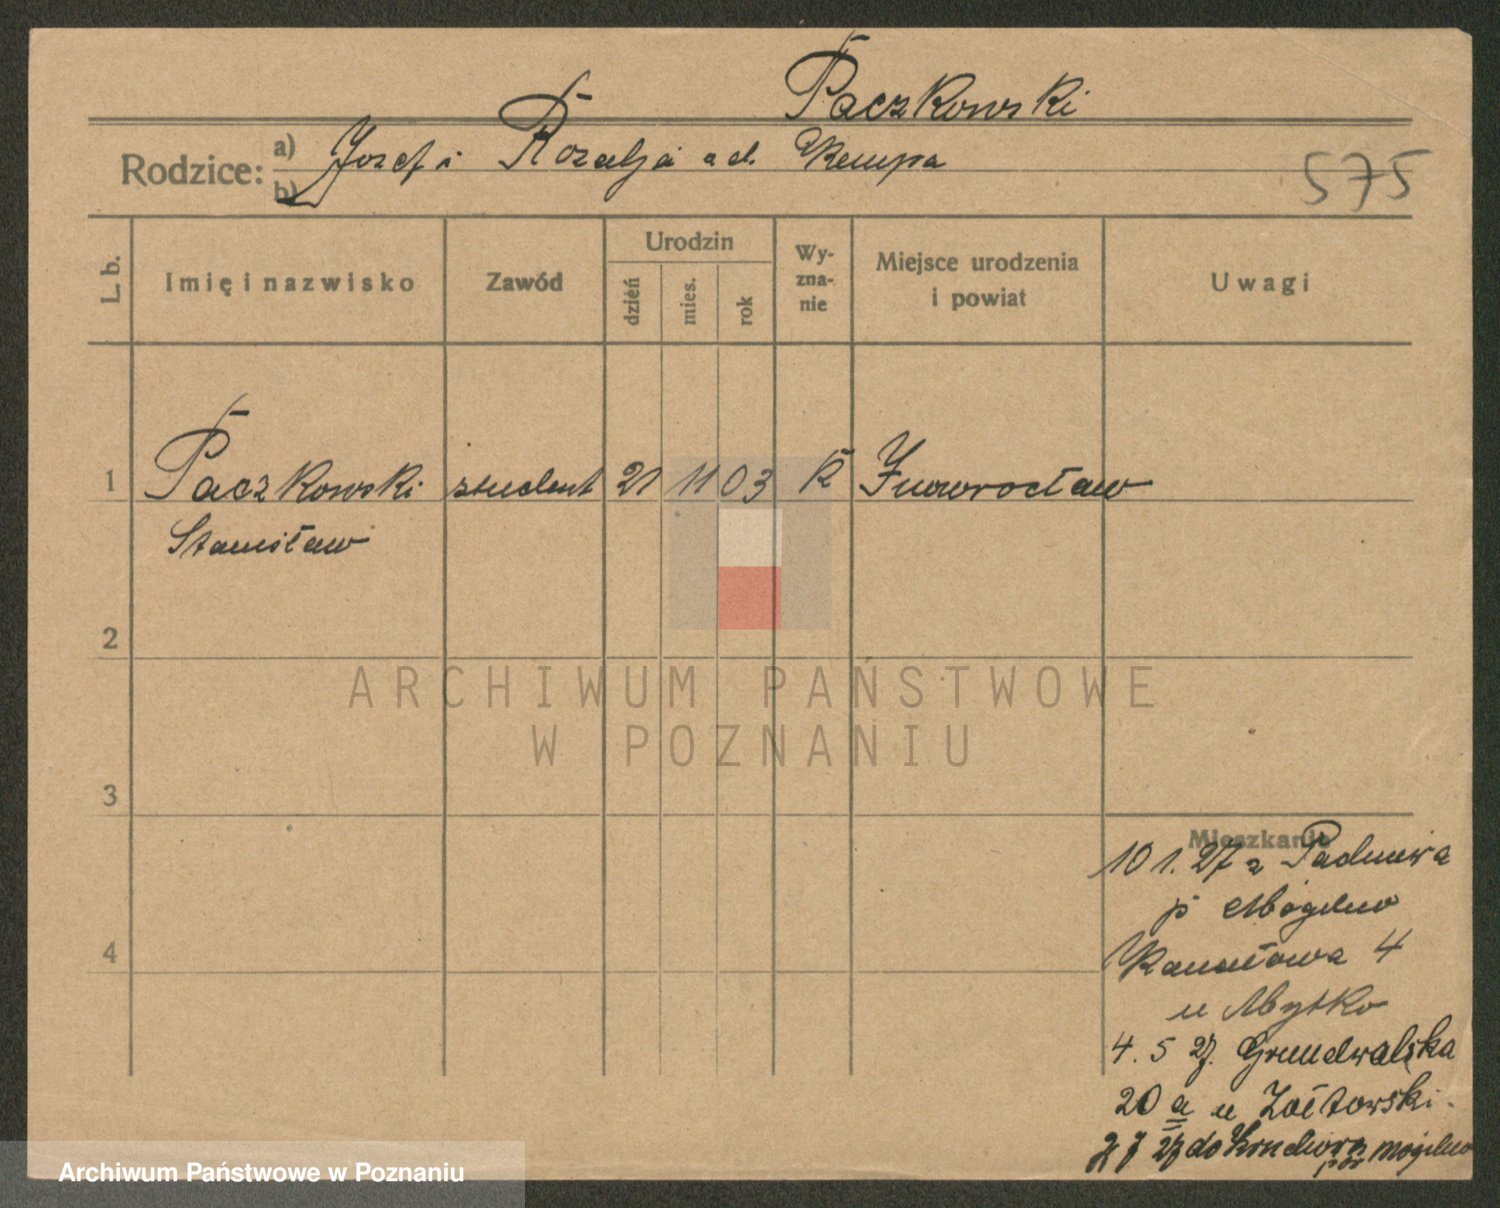 Paczkowski
Rodzice: a) Jozef i Rozalja od. Kempa
b)
575
L. b. Imię i nazwisko Zawód Urodzin dzień mies. rok Wy-zna-nie Miejsce urodzenia i powiat Uwagi
1 Paczkowski student 21 11 03 K Inowrocław
Stanisław
2
ARCHIWUM PAŃSTWOWE
W POZNANIU
3
Mieszkanie
10 1. 27 z Padniewa
p Mogilno
4
Kanałowa 4
u Mytko
4. 5 27. Grunwaldzka
20 a u Żółtowski
7 27 do pow Mogilno
Archiwum Państwowe w Poznaniu